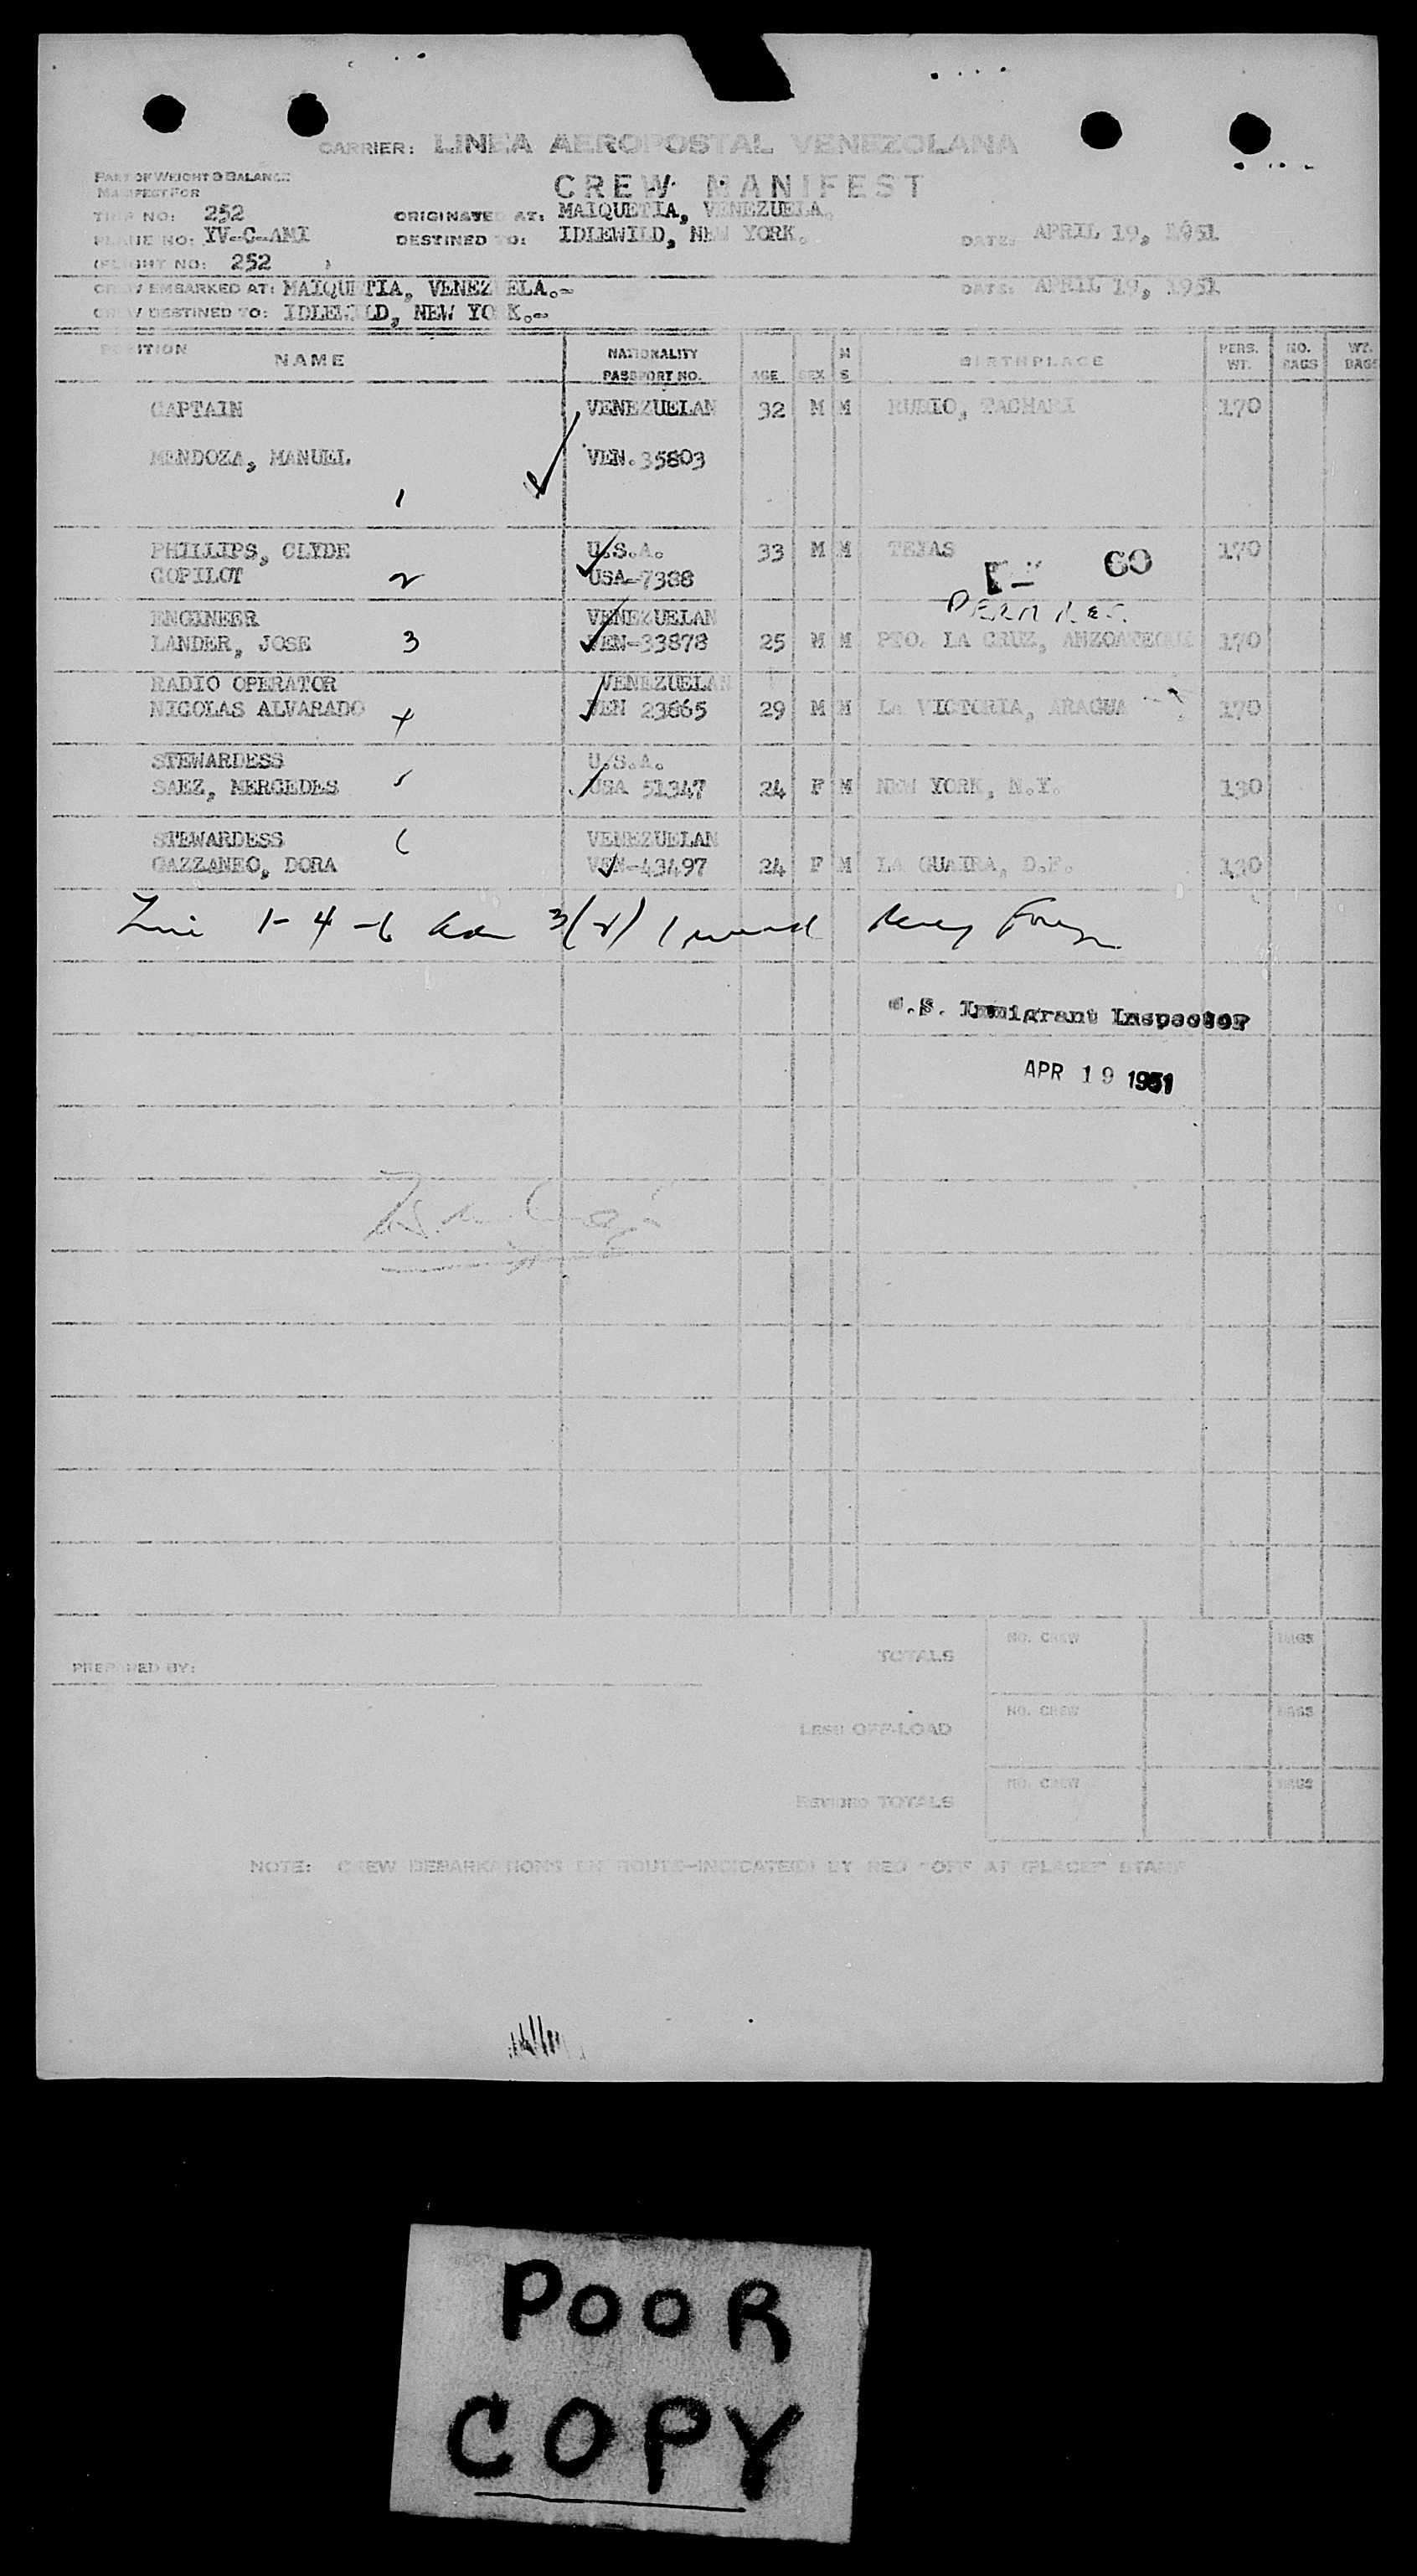 CARRIER: LINEA AEROPOSTAL VENEZOLANA
PART OF WEIGHT & BALANCE
MANIFEST FOR
CREW MANIFEST
TRIP NO: 252 ORIGINATED AT: MAIQUETIA, VENEZUELA.
PLANE NO: YV-C-AMI DESTINED TO: IDLEWILD, NEW YORK. DATE: APRIL 19, 1951
(FLIGHT NO: 252 )
CREW EMBARKED AT: MAIQUETIA, VENEZUELA.- DATE: APRIL 19, 1951
CREW DESTINED TO: IDLEWILD, NEW YORK.-
POSITION NAME NATIONALITY PASSPORT NO. AGE SEX M S BIRTHPLACE PERS. WT. NO. BAGS WT. BAGS
CAPTAIN VENEZUELAN 32 M M RUBIO, TACHARI 170
MENDOZA, MANUEL VEN.35803
1
PHILLIPS, CLYDE U.S.A. 33 M M TEXAS 170
60
COPILOT 2 USA-7388
PERM RES.
ENGINEER VENEZUELAN
LANDER, JOSE 3 VEN-33878 25 M M PTO. LA CRUZ, ANZOATEGUI 170
RADIO OPERATOR VENEZUELAN
NICOLAS ALVARADO 4 VEN 23865 29 M M LA VICTORIA, ARAGUA 170
STEWARDESS U.S.A.
SAEZ, MERCEDES 5 USA 51347 24 F M NEW YORK, N.Y. 130
STEWARDESS 6 VENEZUELAN
GAZZANEO, DORA VEN-43497 24 F M LA GUAIRA, D.F. 130
Line 1-4-6 Adm 3(2)
U.S. Immigrant Inspector
APR 19 1951
PREPARED BY:
TOTALS NO. CREW BAGS
LESS OFF-LOAD NO. CREW BAGS
REVISED TOTALS NO. CREW BAGS
NOTE: CREW DEBARKATIONS EN ROUTE-INDICATE(D) BY RED "OFF AT (PLACE)" STAMP
POOR
COPY